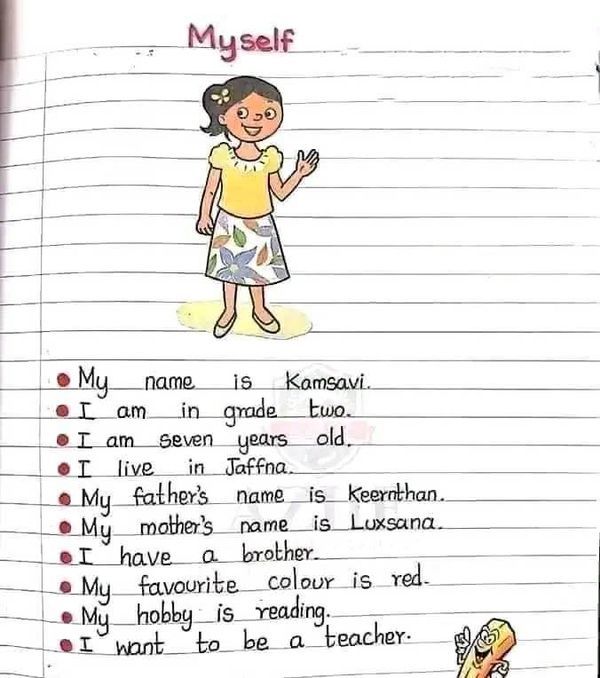 Myself
My name is Kamsavi.
I am in grade two.
I am seven years old.
I live in Jaffna.
My father's name is Keernthan.
My mother's name is Luxsana.
I have a brother.
My favourite colour is red.
My hobby is reading.
I want to be a teacher.